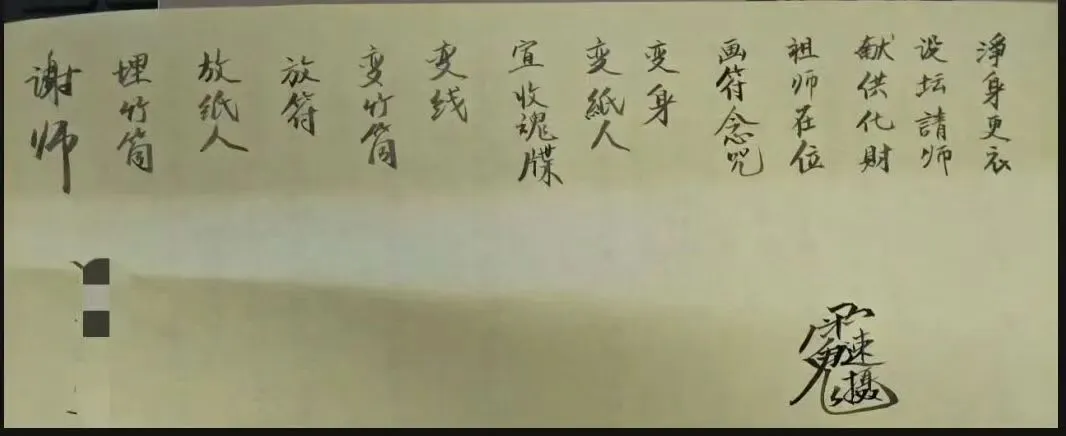 淨身更衣
设坛請师
献供化財
祖师在位
画符念咒
变身
变紙人
宣收魂牒
变线
变竹筒
放符
放紙人
埋竹筒
谢师
速摄